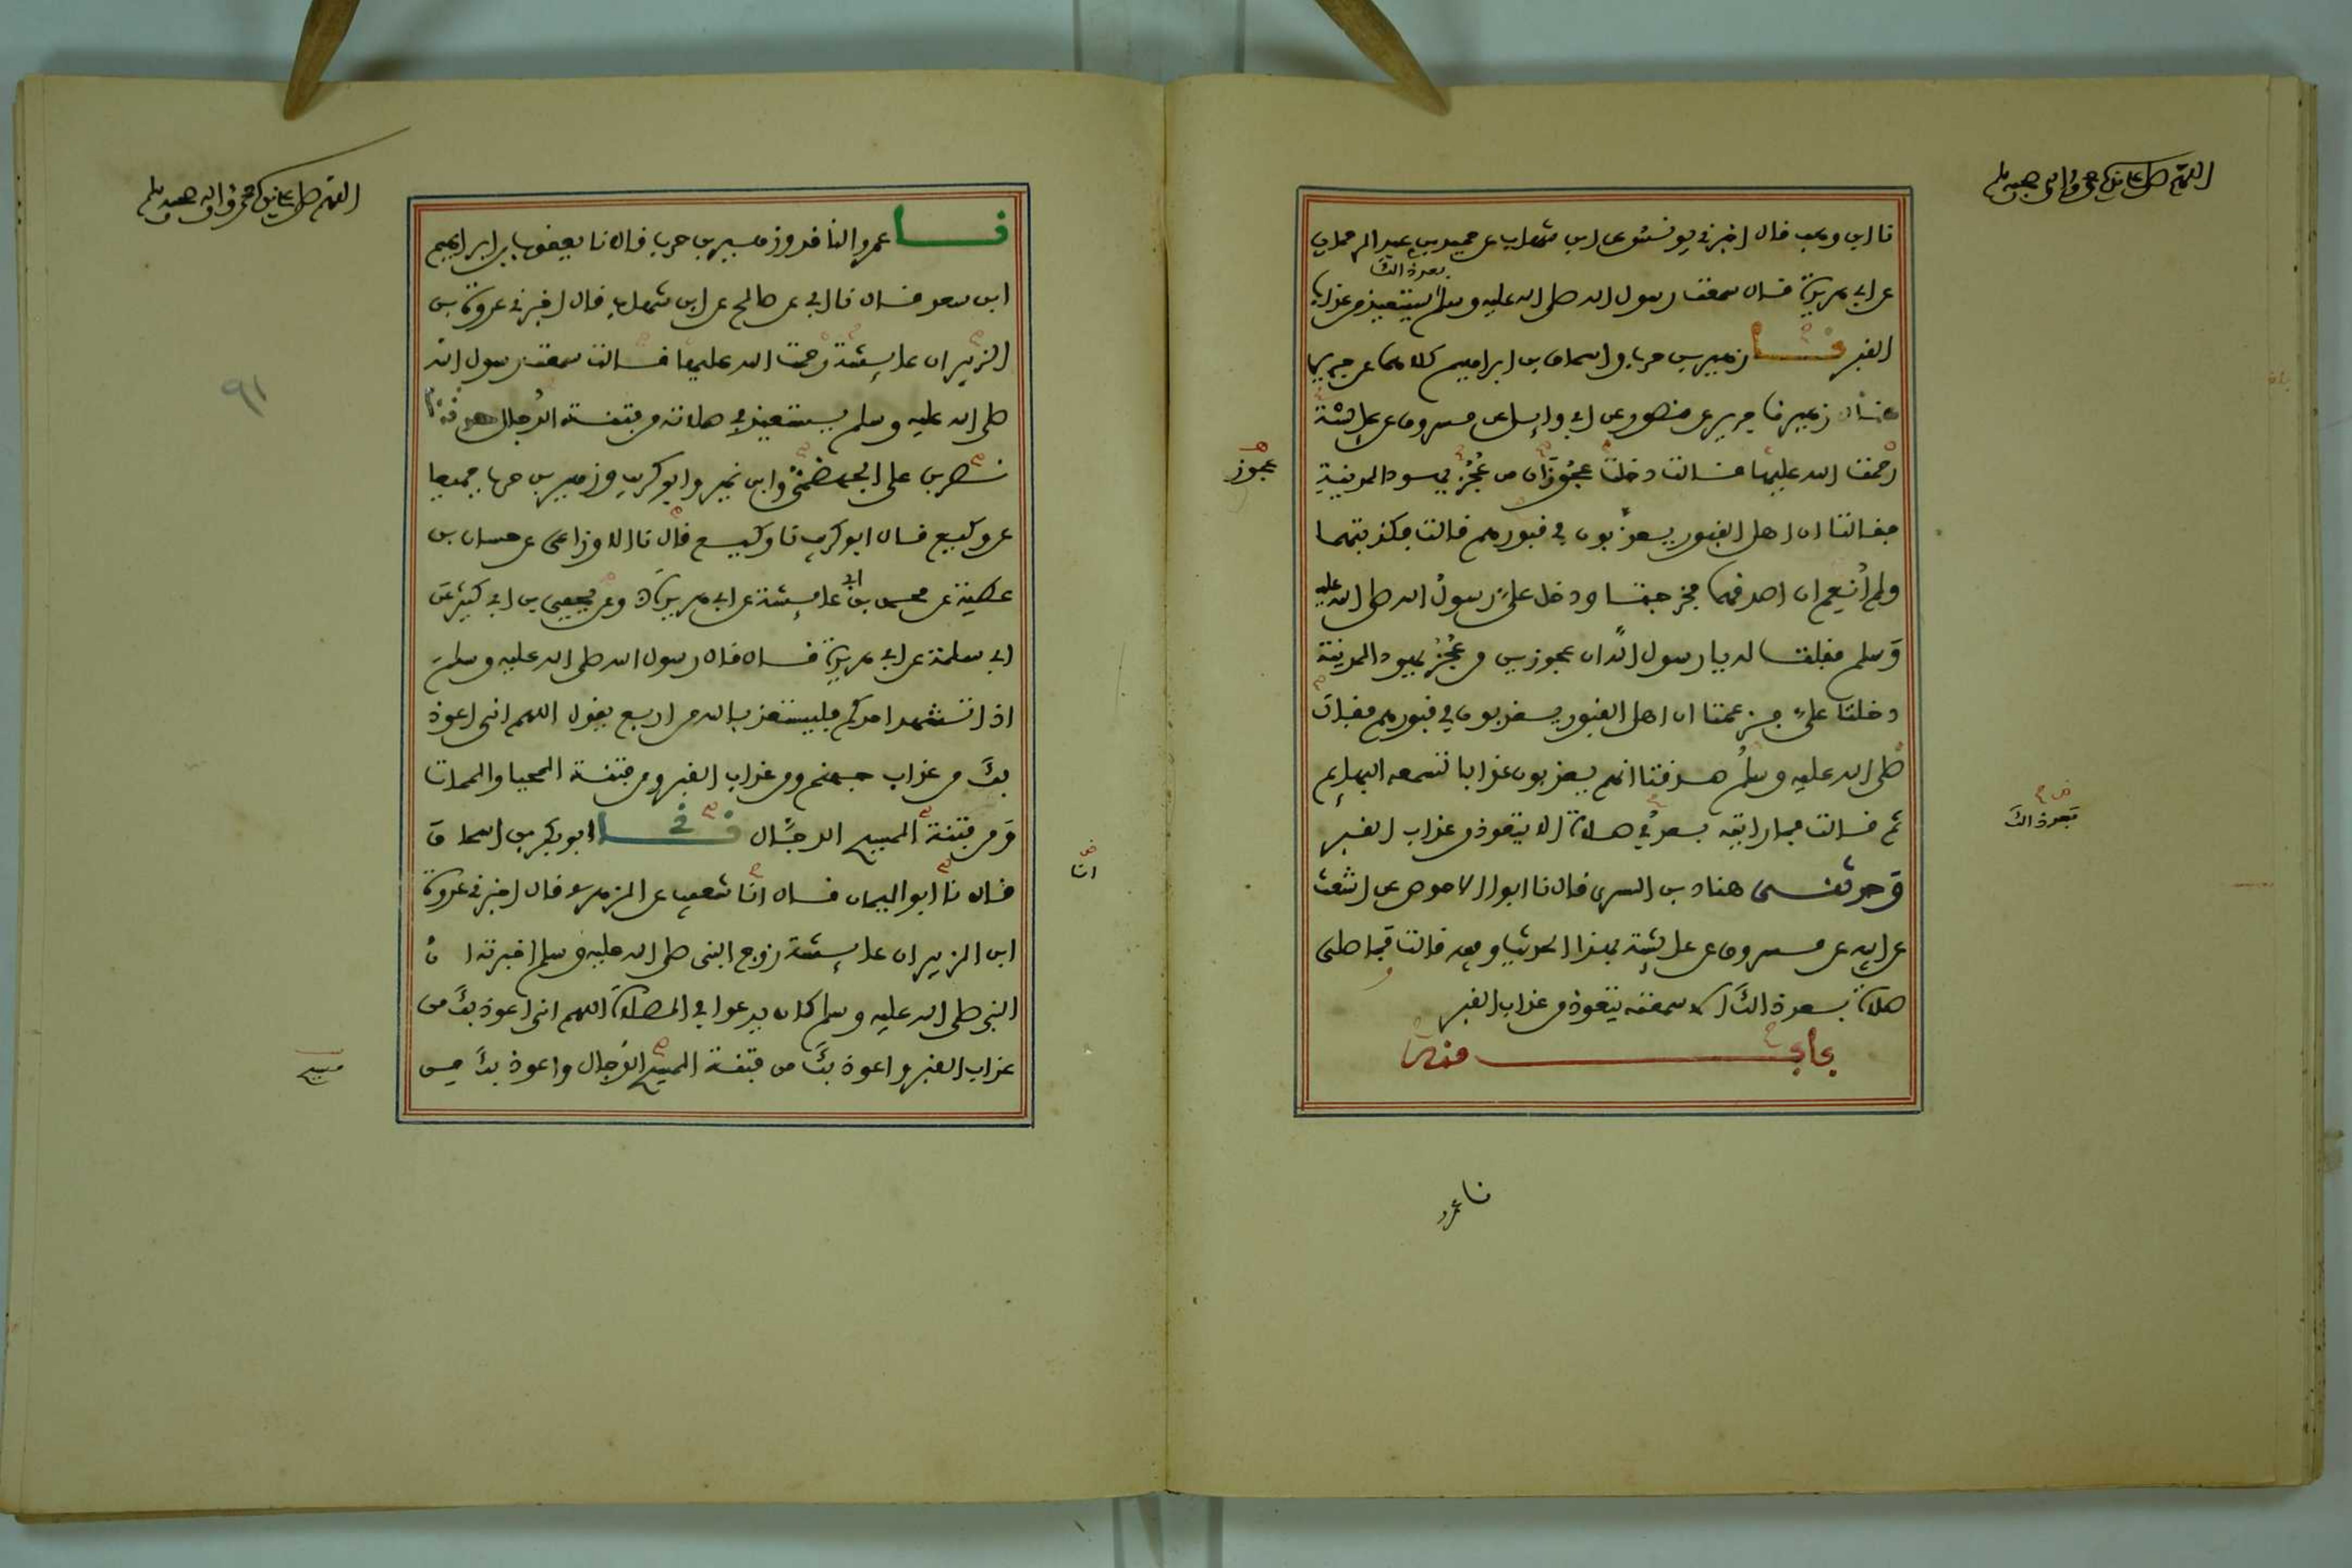 اللهم صل على سيدنا محمد وآله وصحبه وسلم
نا ابن وهب قال اخبرني يونس عن ابن شهاب عن حميد بن عبد الرحمان
بعد ذالك
عن ابي هريرة قال سمعت رسول الله صلى الله عليه وسلم يستعيذ من عذاب
القبر نا زهير بن حرب واسحاق بن ابراهيم كلاهما عن جرير
قال زهير نا جرير عن منصور عن ابي وايل عن مسروق عن عايشة
رحمت الله عليها قالت دخلت عجوزان من عجز يهود المدينة
عجوز
فقالتا ان اهل القبور يعذبون في قبورهم قالت فكذبتهما
ولم انعم ان اصدقهما فخرجتا ودخل علي رسول الله صلى الله عليه
وسلم فقلت له يا رسول الله ان عجوزين من عجز يهود المدينة
دخلتا علي فزعمتا ان اهل القبور يعذبون في قبورهم فقال
صلى الله عليه وسلم صدقتا انهم يعذبون عذابا تسمعه البهايم
ثم قالت فما رايته بعد في صلاة الا يتعوذ من عذاب القبر
بعد ذالك
وحدثني هناد بن السري قال نا ابو الاحوص عن اشعث
عن ابيه عن مسروق عن عايشة بهذا الحديث وفيه قالت فما صلى
صلاة بعد ذالك الا سمعته يتعوذ من عذاب القبر
باب منه
نا عمرو
اللهم صل على سيدنا محمد وآله وصحبه وسلم
نا عمرو الناقد وزهير بن حرب قالا نا يعقوب بن ابراهيم
ابن سعد قال نا ابي عن صالح عن ابن شهاب قال اخبرني عروة بن
الزبير ان عايشة رحمت الله عليها قالت سمعت رسول الله
صلى الله عليه وسلم يستعيذ في صلاته من فتنة الدجال
٩١
نصر بن علي الجهضمي وابن نمير وابو كريب وزهير بن حرب جميعا
عن وكيع قال ابو كريب نا وكيع قال نا الاوزاعي عن حسان بن
عطية عن محمد بن ابي عايشة عن ابي هريرة وعن يحيى بن ابي كثير عن
ابي سلمة عن ابي هريرة قال قال رسول الله صلى الله عليه وسلم
اذا تشهد احدكم فليستعذ بالله من اربع يقول اللهم اني اعوذ
بك من عذاب جهنم ومن عذاب القبر ومن فتنة المحيا والممات
ومن فتنة المسيح الدجال نا ابو بكر بن اسحاق
قال نا ابو اليمان قال انا شعيب عن الزهري قال اخبرني عروة
انا
ابن الزبير ان عايشة زوج النبي صلى الله عليه وسلم اخبرته ان
النبي صلى الله عليه وسلم كان يدعو في الصلاة اللهم اني اعوذ بك من
عذاب القبر واعوذ بك من فتنة المسيح الدجال واعوذ بك من
مسيح